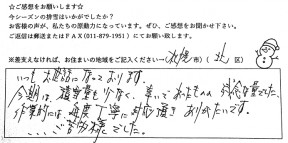 ☆ご感想をお願いします☆
今シーズンの排雪はいかがでしたか?
お客様の声が、私たちの原動力になっています。ぜひ、ご感想をお聞かせ下さい。
ご返信は郵送またはFAX(011-879-1951)にてお願い致します。
※差支えなければ、お住まいの地域をご記入ください→(札幌 市)(北 区)
いつもお世話になっております。
今期は、積雪量も少なく、幸いでしたものの
作業的には、毎度丁寧に対応頂きありがたいです。
....ご苦労様でした。